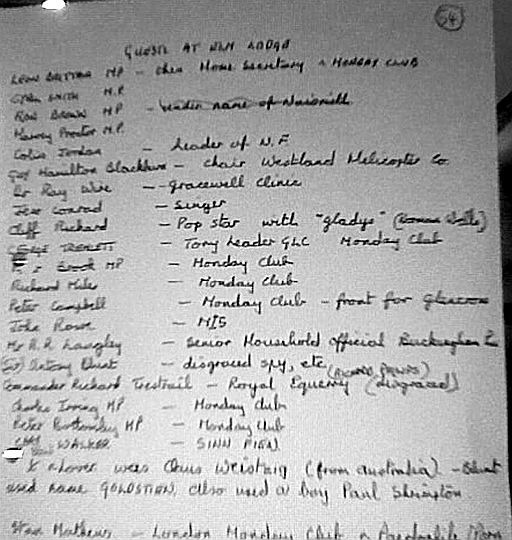 54
GUESTS AT ELM LODGE
LEON BRITTAN MP - then Home Secretary & MONDAY CLUB
SMITH M.P.
RON BROWN MP - under name of
Harvey Proctor M.P.
Colin Jordan - Leader of N.F
Guy Hamilton Blackburn - chair Westland Helicopter Co
Dr Ray Wire - gracewell clinic
Jess Conrad - Singer
Cliff Richard - Pop star with "gladys"
- Tory Leader GLC Monday Club
Brook MP - Monday Club
Richard Miles - Monday Club
Peter Campbell - Monday Club - front for
John Rowe - MI5
Mr R.R. Langley - Senior Household Official Buckingham
(Sir) Antony Blunt - disgraced spy, etc
Commander Richard Trestrail - Royal Equerry (disgraced)
Charles Irving MP - Monday Club
Peter Bottomley MP - Monday Club
WALKER - SINN FIEN
lover was Chris (from australia) - Blunt
used name GOLDSTIEN, also used a boy Paul
Mathews - London Monday Club